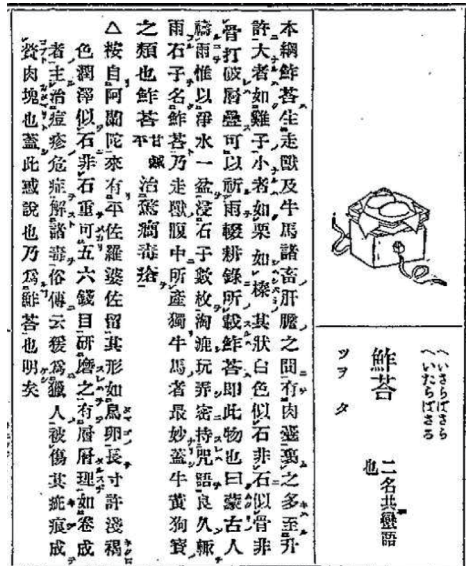 へいさらばさら
へいたらばさる
鮓荅
ツヲ タ
二名共蠻語
也
本綱鮓荅生走獸及牛馬諸畜肝膽之間有肉嚢裹之多至升
許大者如雞子小者如栗如榛其狀白色似石非石似骨非
骨打破層疊可以祈雨輟耕錄所載鮓荅卽此物也曰蒙古人
禱雨惟以淨水一盆浸石子數枚淘漉玩弄密持咒語良久輙
雨石子名鮓荅乃走獸腹中所產獨牛馬者最妙蓋牛黃狗寶
之類也鮓荅甘鹹平治驚癇毒瘡
△按自阿蘭陀來有平佐羅婆佐留其形如鳥卵長寸許淺褐
色潤澤似石非石重可五六錢目研磨之有層層理如卷成
者主治痘疹危症解諸毒俗傳云猨爲獵人被傷其疵痕成
贅肉塊也蓋此惑說也乃爲鮓荅也明矣